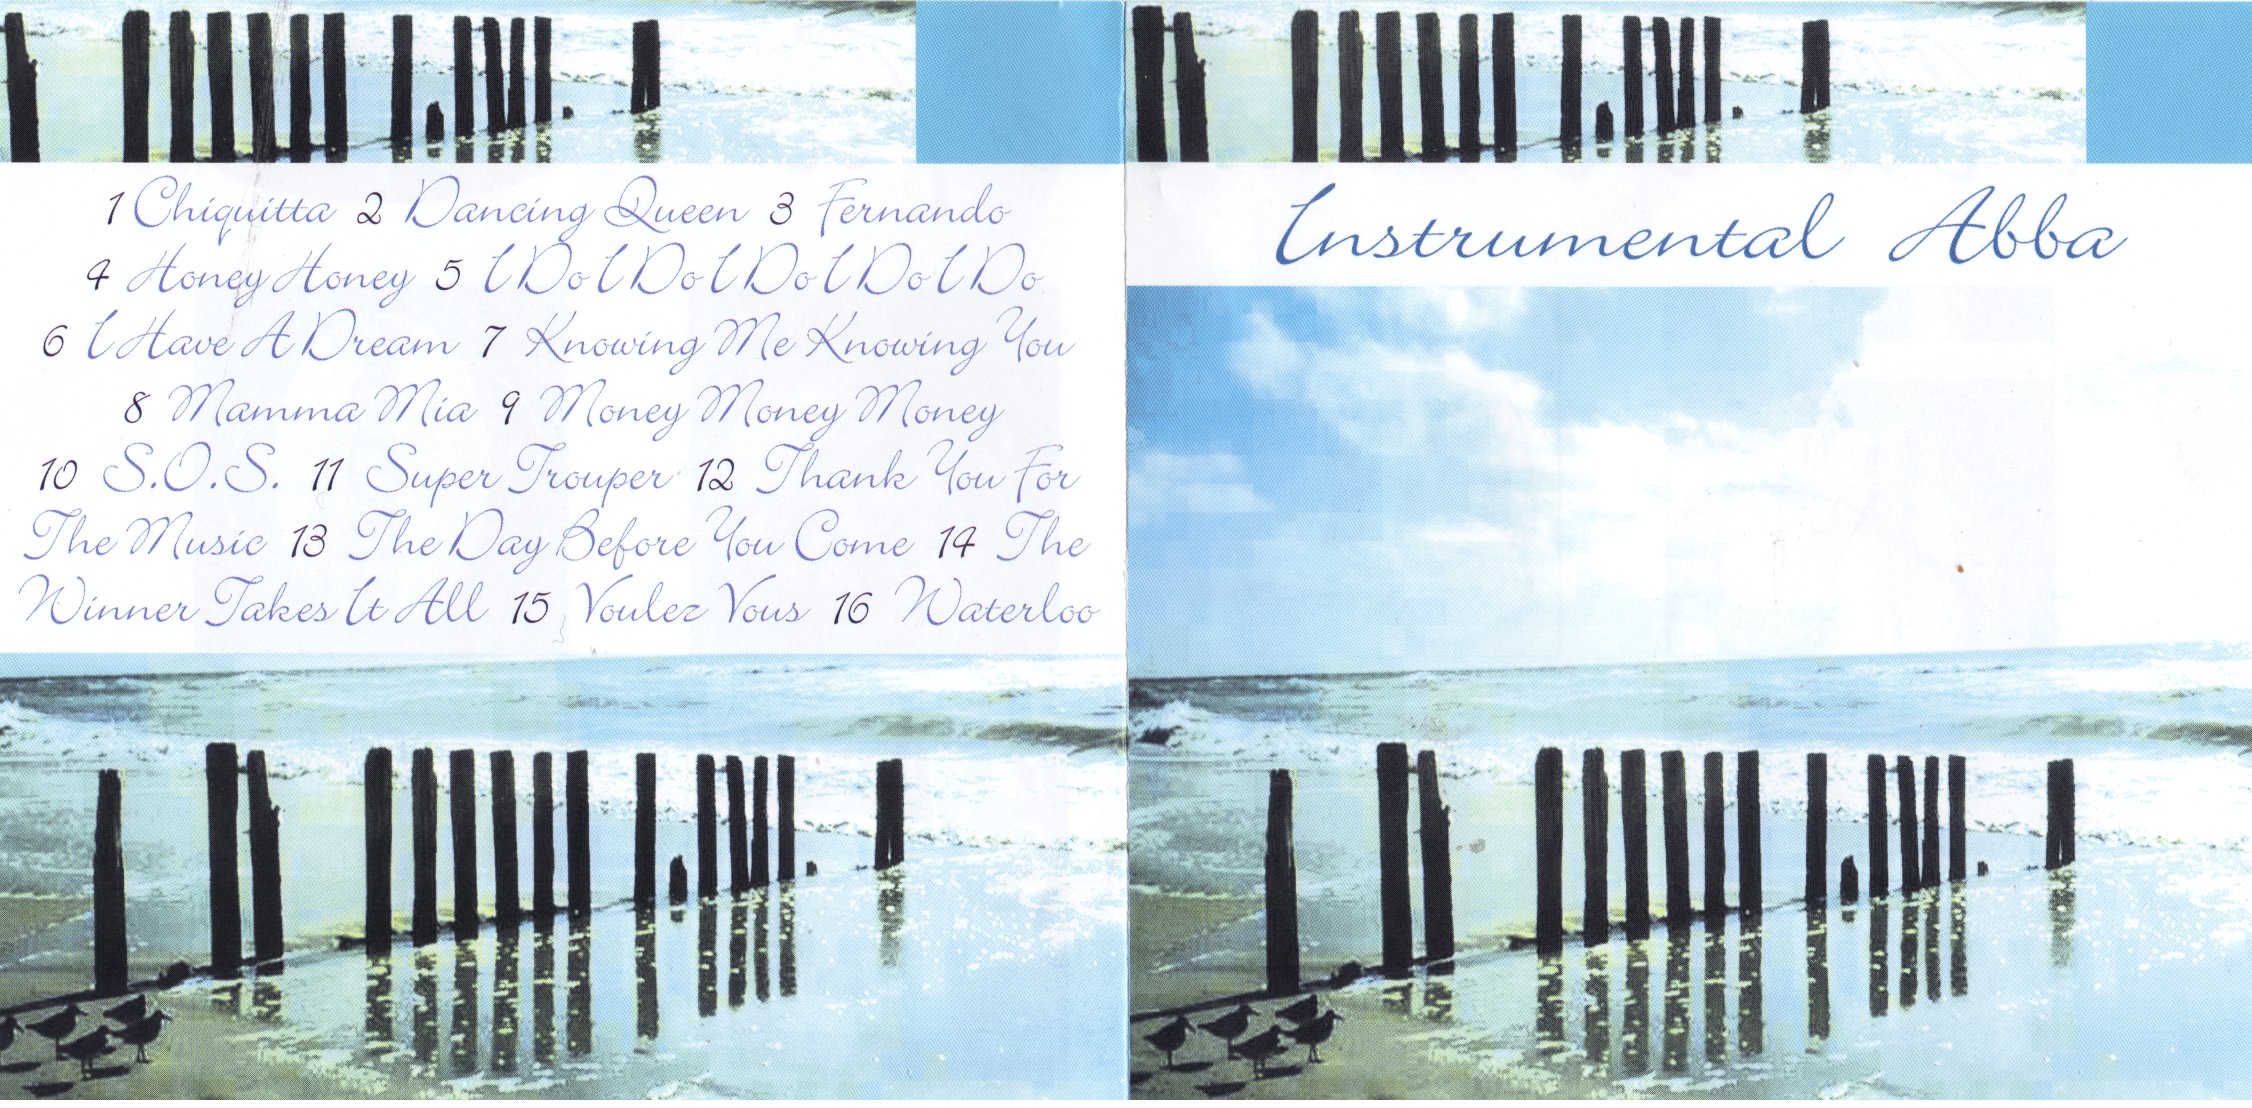 1 Chiquitta 2 Dancing Queen 3 Fernando
4 Honey Honey 5 I Do I Do I Do I Do I Do
6 I Have A Dream 7 Knowing Me Knowing You
8 Mamma Mia 9 Money Money Money
10 S.O.S. 11 Super Trouper 12 Thank You For
The Music 13 The Day Before You Come 14 The
Winner Takes It All 15 Voulez Vous 16 Waterloo
Instrumental Abba